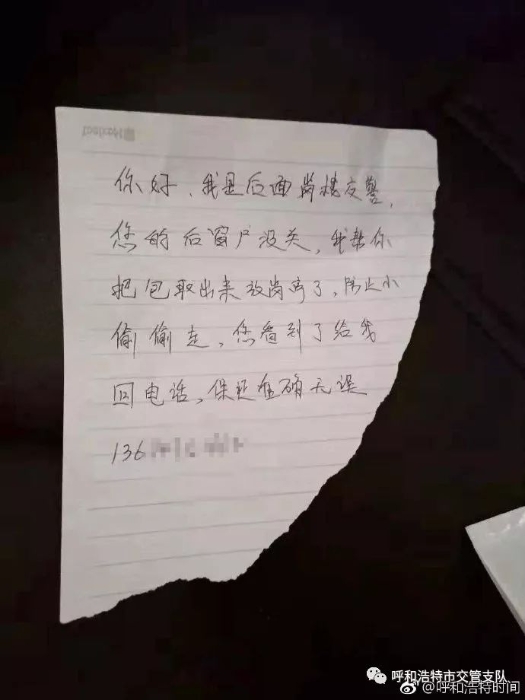 你好、我是后面岗楼交警、
您的后窗户没关,我帮你
把包取出来放岗亭了,防止小
偷偷走,您看到了给我
回电话、保证准确无误
136
呼和浩特市交管支队
@呼和浩特时间